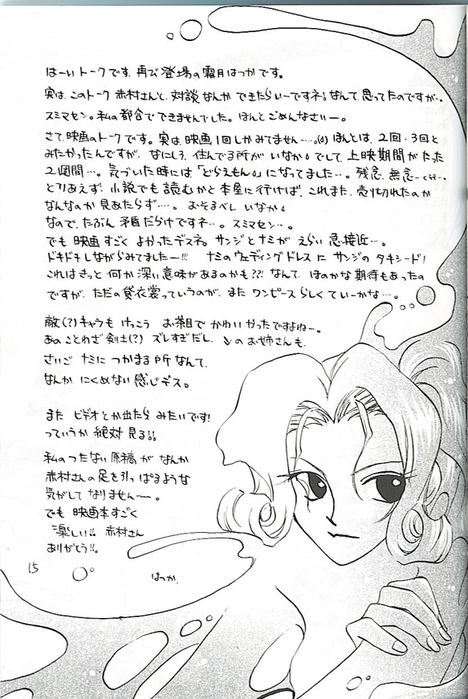 はーいトークです。再び登場の霜月はつかです。
実は、このトーク赤村さんと、対談なんかできたらいーですネ。なんて、思ってたのですがー。
スミマセン。私の都合でできませんでした。ほんとごめんなさいー。
さて、映画のトークです。実は、映画1回しかみてません…。ほんとは、2回・3回と
みたかったんですが、なにしろ、住んでる所がいなか。でして、上映期間がたった
2週間…。気づいた時には「どらえもん。」になってました…。残念、無念
とりあえず、小説でも読むかと本屋に行けば、これまた、売り切れたのか
なんなのか見あたらず…。おそるべし いなか。
なので、たぶん矛盾だらけですネー。スミマセンー。
でも映画すごくよかったデスネ。サンジとナミがえらい急接近…。
ドキドキしながらみてましたー!! ナミのウェディングドレスにサンジのタキシード!
これはきっと何か深い意味があるのかも??なんて、ほのかな期待もあったの
ですが、ただの貸衣裳っていうのが、またワンピースらしくていーかな…。
敵(?)キャラもけっこうお茶目でかわいかったですよねー。
あのことわざ剣士(?) ズレすぎだし、のお姉さんも、
さいごナミにつかまる所なんて、
なんかにくめない感じデス。
またビデオとか出たらみたいです!
っていうか絶対見る!!
私のつたない原稿がなんか
赤村さんの足を引っぱるような
気がしてなりませんー。
でも映画本すごく
楽しい!! 赤村さん
ありがとう!!
はつか.
15